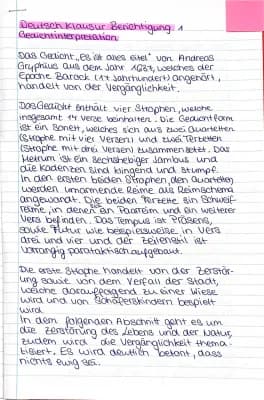 Deutsch Klausur Berichtigung 1
Gedichtinterpretation
Das Gedicht „Es ist alles eitel" von Andreas
Gryphius aus dem Jahr 1637, welches der
Epoche Barock (17 Jahrhundert) angehört,
handelt von der Vergänglichkeit.
Das Gedicht enthält vier Strophen, welche
insgesamt 14 verse beinhalten. Die Gedichtform
ist ein Sonett, welches sich aus zwei Quartetten
(Strophe mit vier Versen) und zwei Terzetten
(Strophe mit drei Versen) zusammen setzt. Das
Metrum ist ein sechshebiger Jambus und
die Kadenzen sind klingend und stumpf.
In den ersten beiden Strophen, den Quartetten,
werden umarmende Reime als Reimschema
angewandt. Die beiden Terzette ein Schweif-
reime, in denen ein Paarreim und ein weiterer
Vers befinden. Das Tempus ist Präsens,
sowie Futur wie beispielsweise in Vers
drei und vier und der Zeilenstil ist
vorrangig parataktisch aufgebaut.
Die erste Strophe handelt von der Zerstör-
ung sowie von dem Verfall der Stadt,
welche darauffolgend zu einer Wiese
wird und von Schäferskindern bespielt
wird.
In dem folgenden Abschnitt geht es um
die Zerstörung des Lebens und der Natur,
zudem wird die Vergänglichkeit thema-
tisiert. Es wird deutlich betont, dass
nichts ewig sei.